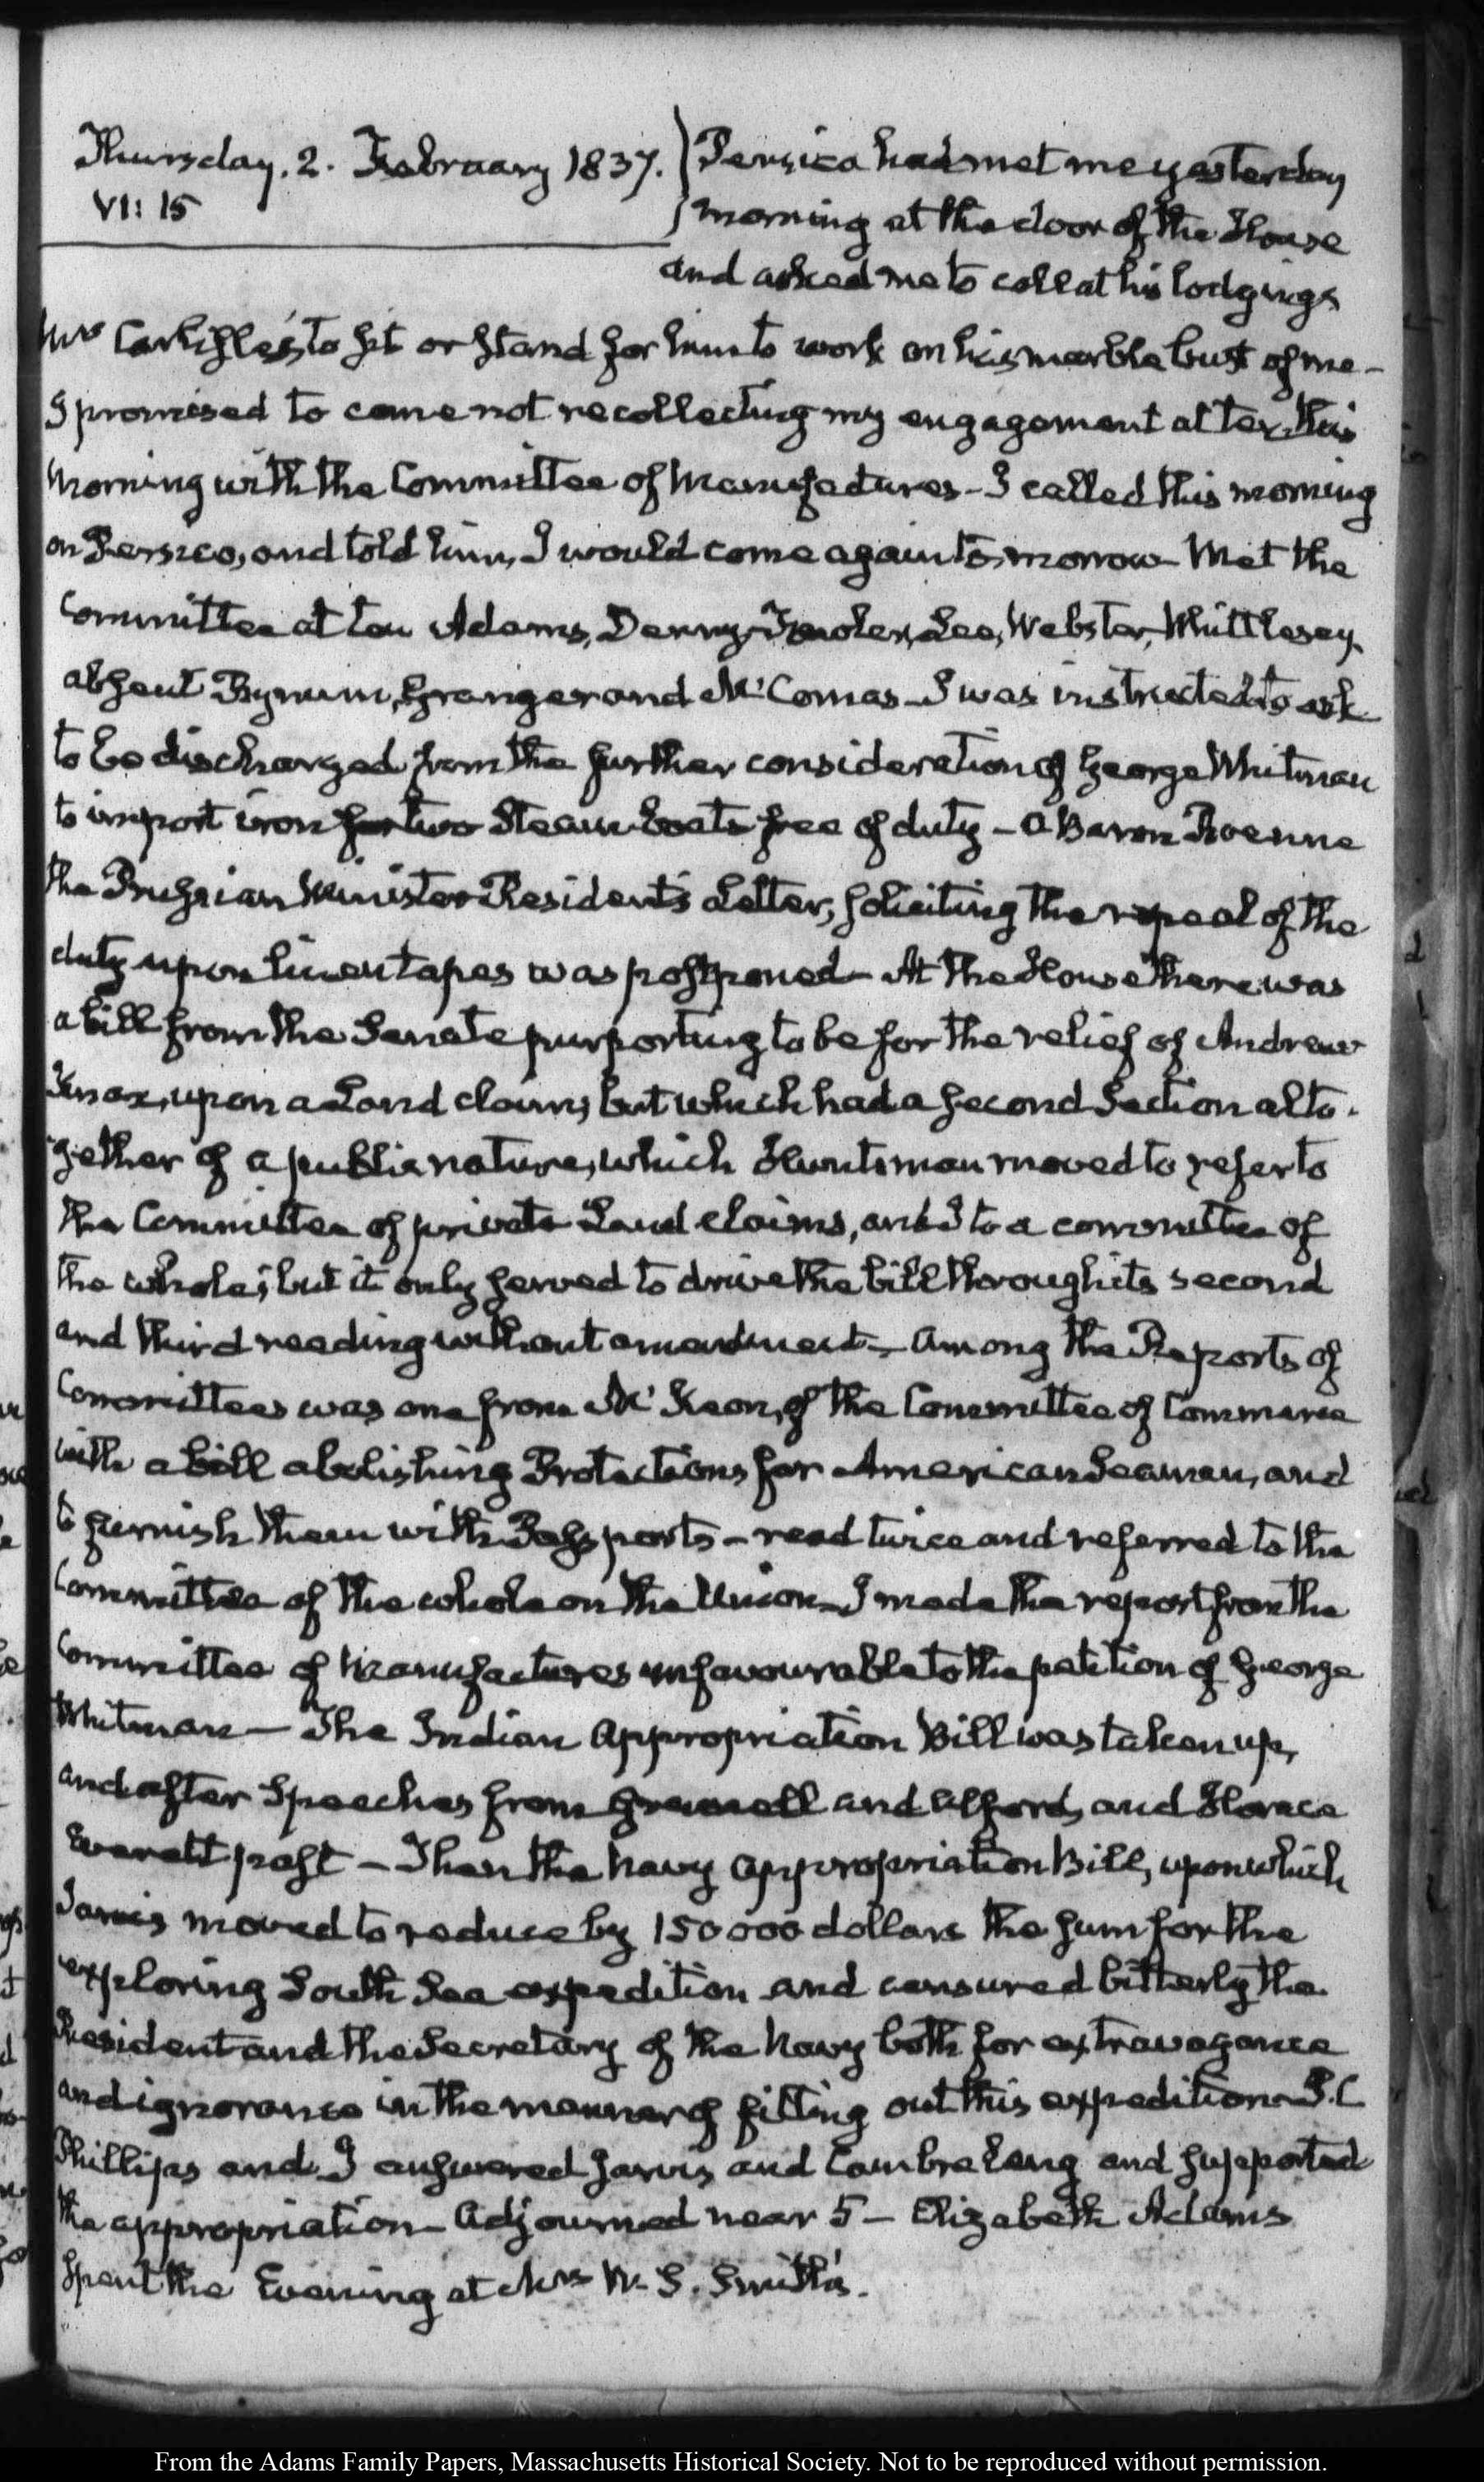 Thursday. 2. February 1837.
VI: 15
Persico had met me yesterday
morning at the door of the House
and asked me to call at his lodgings
Mrs Carlisle's, to sit or stand for him to work on his marble bust of me—
I promised to come not recollecting my engagement at ten, this
morning with the Committee of Manufactures— I called this morning
on Persico, and told him, I would come again to-morrow— Met the
Committee at ten Adams, Denny, Fowler, Lee, Webster, Whittlesey.
absent Bynum, Granger and McComas— I was instructed to ask
to be discharged from the further consideration of George Whitman
to import iron for two Steam boats free of duty— a Baron Roenne
the Prussian Minister Resident's Letter, soliciting the repeal of the
duty upon linen tapes was postponed— At the House there was
a bill from the Senate purporting to be for the relief of Andrew
Knox, upon a Land claim, but which had a second Section alto-
gether of a public nature, which Huntsman moved to refer to
the Committee of private Land claims, and I to a committee of
the whole; but it only served to drive the bill through its second
and third reading without amendment— Among the Reports of
Committees was one from McKeon, of the Committee of Commerce
with a bill abolishing Protections for American Seamen, and
to furnish them with Passports— read twice and referred to the
Committee of the whole on the Union— I made the report from the
Committee of Manufactures unfavourable to the petition of George
Whitman— The Indian Appropriation Bill was taken up,
and after Speeches from and Alford, and Horace
Everett past— Then the Navy appropriation Bill, upon which
Jarvis moved to reduce by 150000 dollars the sum for the
exploring South Sea expedition and censured bitterly the
President and the Secretary of the Navy both for extravagance
and ignorance in the manner of fitting out this expedition— S. C.
Phillips and I answered Jarvis and Cambreleng and supported
the appropriation— Adjourned near 5— Elizabeth Adams
spent the Evening at Mrs W. S. Smith's.
From the Adams Family Papers, Massachusetts Historical Society. Not to be reproduced without permission.